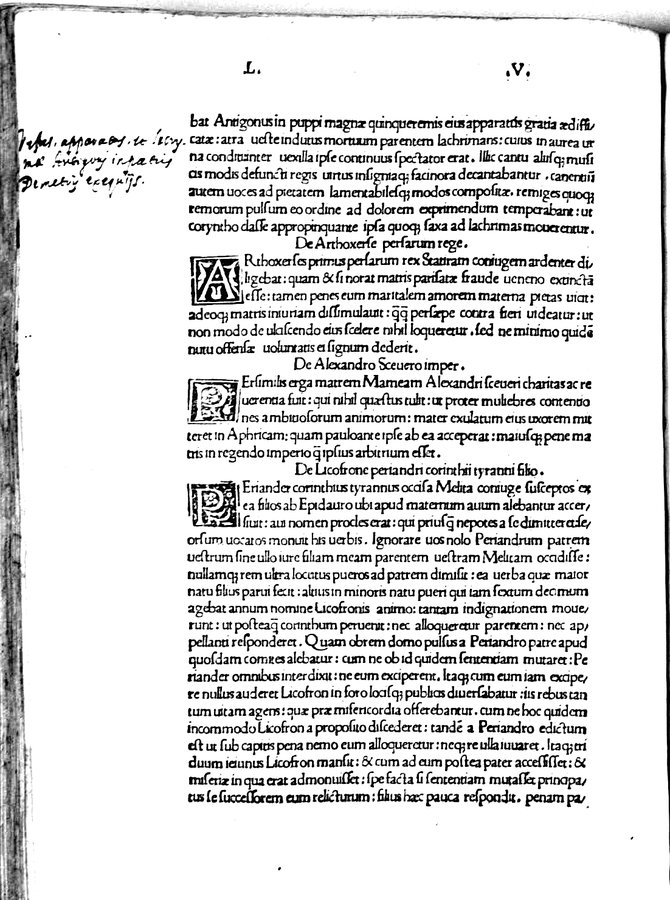 L. .V.
bat Antigonus in puppi magnæ quinqueremis eius apparatus gratia ædifi/
catæ: atra ueste indutus mortuum parentem lachrimans: cuius in aurea ur
na condituanter uexilla ipse continuus spectator erat. Illic cantu aliisq; musi
cis modis defuncti regis uirtus insigniaq; facinora decantabantur. canentiū
autem uoces ad pietatem lamentabilesq; modos compositæ. remiges quoq;
remorum pulsum eo ordine ad dolorem exprimendum temperabant: ut
coryntho classe appropinquante ipsa quoq; saxa ad lachrimas mouerentur.
apparatus
Antigoni in patris
Demetrij exequijs.
De Arthoxerse persarum rege.
ARthoxerses primus persarum rex Statiram coniugem ardenter di,
ligebat: quam & si norat matris parisatæ fraude ueneno extinctā
esse: tamen penes eum maritalem amorem materna pietas uicit:
adeoq; matris iniuriam dissimulauit: q̄q̄ persæpe contra fieri uideatur: ut
non modo de ulciscendo eius scelere nihil loqueretur. sed ne minimo quidē
nutu offensæ uoluntatis ei signum dederit.
De Alexandro Sceuero imper.
PErsimilis erga matrem Mameam Alexandri sceueri charitas ac re
uerentia fuit: qui nihil quæstus tulit: ut propter muliebres contentio
nes ambitiosorum animorum: mater exulatum eius uxorem mit
teret in Aphricam: quam pauloante ipse ab ea acceperat: maiusq; pene ma
tris in regendo imperio q̄ ipsius arbitrium esset.
De Licofrone periandri corinthii tyranni filio.
PEriander corinthius tyrannus occisa Melita coniuge susceptos ex
ea filios ab Epidauro ubi apud maternum auum alebantur accer/
siuit: aui nomen procles erat: qui priusq̄ nepotes a se dimitteret se/
orsum uocatos monuit his uerbis. Ignorare uos nolo Periandrum patrem
uestrum sine ullo iure filiam meam parentem uestram Melitam occidisse:
nullamq; rem ultra locutus pueros ad patrem dimisit: ea uerba quæ maior
natu filius parui fecit: altius in minoris natu pueri qui iam sextum decimum
agebat annum nomine Licofronis animo: tantam indignationem moue/
runt: ut posteaq̄ corinthum peruenit: nec alloqueretur parentem: nec ap/
pellanti responderet. Quam obrem domo pulsus a Periandro patre apud
quosdam comites alebatur: cum ne ob id quidem sententiam mutaret: Pe
riander omnibus interdixit: ne eum exciperent. Itaq; cum eum iam excipe/
re nullus auderet Licofron in foro locisq; publicis diuersabatur: iis rebus tan
tum uitam agens: quæ præ misericordia offerebantur. cum ne hoc quidem
incommodo Licofron a proposito discederet: tandē a Periandro edictum
est ut sub capitis pena nemo eum alloqueretur: neq; re ulla iuuaret. Itaq; tri
duum ieiunus Licofron mansit: & cum ad eum postea pater accessisset: &
miseriæ in qua erat admonuisset: spe facta si sententiam mutasset principa/
tus se successorem eum relicturum: filius hæc pauca respondit. penam pa/